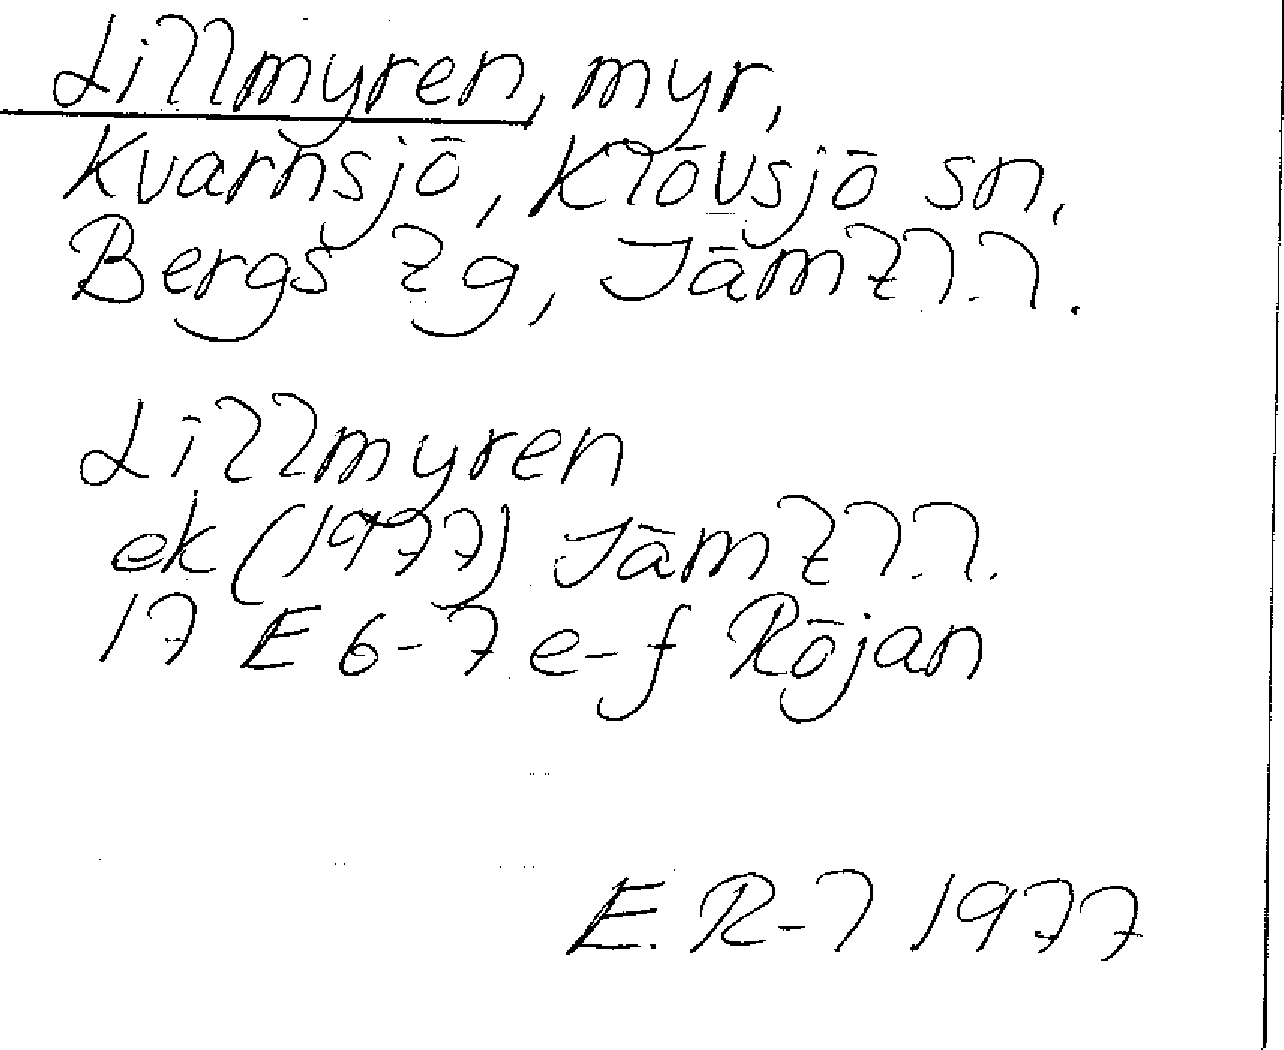 Lillmyren, myr,
Kvarnsjö, Klövsjö sn,
Bergs tg, Jämtl.l.
Lillmyren
ek (1977) Jämtl.l.
17 E 6-7 e-f Röjan
E. R-l 1977